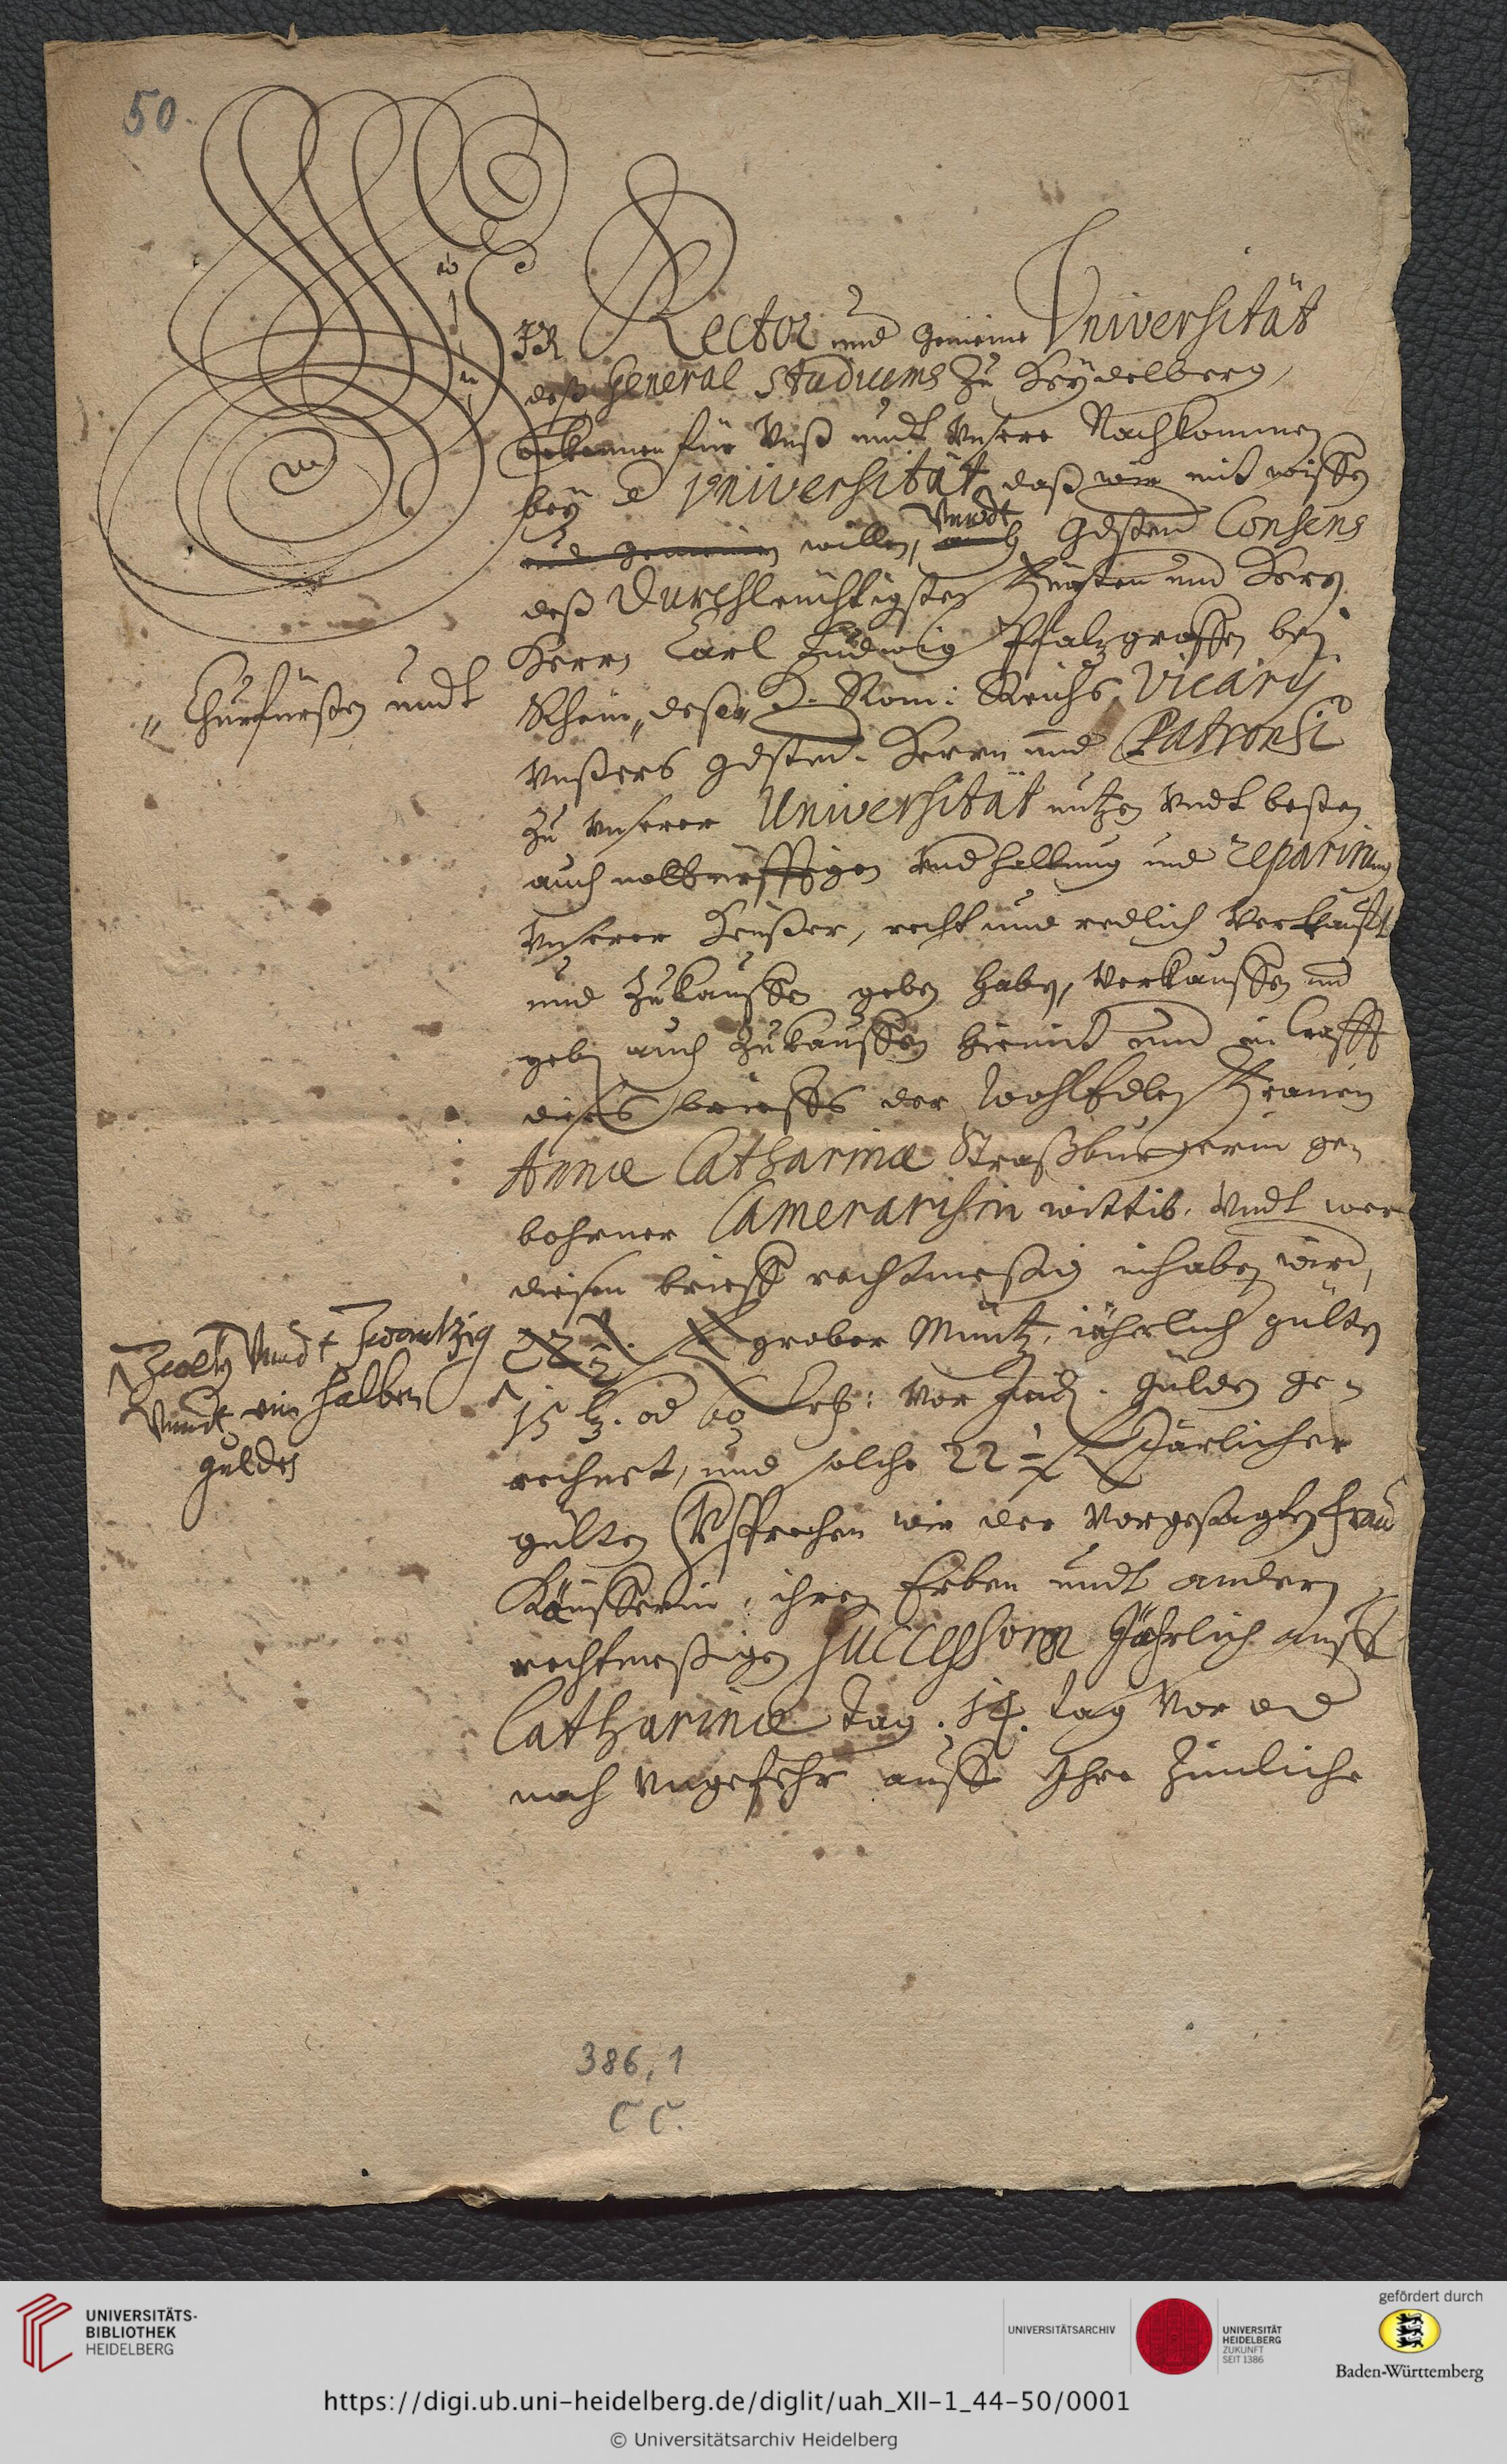 50.
WIR Rector und gemeine Universität
deß General Studiums Zu Heÿdelberg,
bekennen für Unß undt Unsere Nachkommen
beÿ d Universität, daß wir mit wissen
und gemeinen willen, Undt auch gdsten Consens
deß Durchleuchtigsten Fürsten und Herrn
Herrn Carl Ludwig Pfaltzgraffen beÿ
" Churfürsten undt
Rhein, deß H. Rom: Reichs Vicarÿ
Unßers gdsten Herrn und Patronsi
Zu Unserer Universität nutzen Undt besten
auch und haltung und reparirung
Unserer Heußer, recht und redlich Verkaufft
und Zukauffen geben haben, Verkauffen und
geben auch Zukauffen hiemit und in Crafft
dießes brieffs der WohlEdlen Frauen
Annæ Catharinæ Straßburgerin ge-
bohrner Camerarisin wittib. Undt wer
diesen brieff rechtmeßig inhaben wird,
Zweÿ Undt Zwantzig
Undt ein halben
gulden
22 1/2 fl grober Müntz, jährlich gülten
15 bz. od 60 Vor jeden gulden ge-
rechnet, und solche 22 1/2 fl Järlicher
gülten Versprechen wir der Vorgesagten Frau
Käufferin, ihren Erben undt andern
rechtmeßigen Successorn Jährlich auff
Catharinæ tag. 14. tag Vor od
nach Ungefehr auff Ihre Zimliche
386,1
CC.
UNIVERSITÄTS-
BIBLIOTHEK
HEIDELBERG
UNIVERSITÄTSARCHIV
UNIVERSITÄT
HEIDELBERG
ZUKUNFT
SEIT 1386
gefördert durch
Baden-Württemberg
https://digi.ub.uni-heidelberg.de/diglit/uah_XII-1_44-50/0001
© Universitätsarchiv Heidelberg